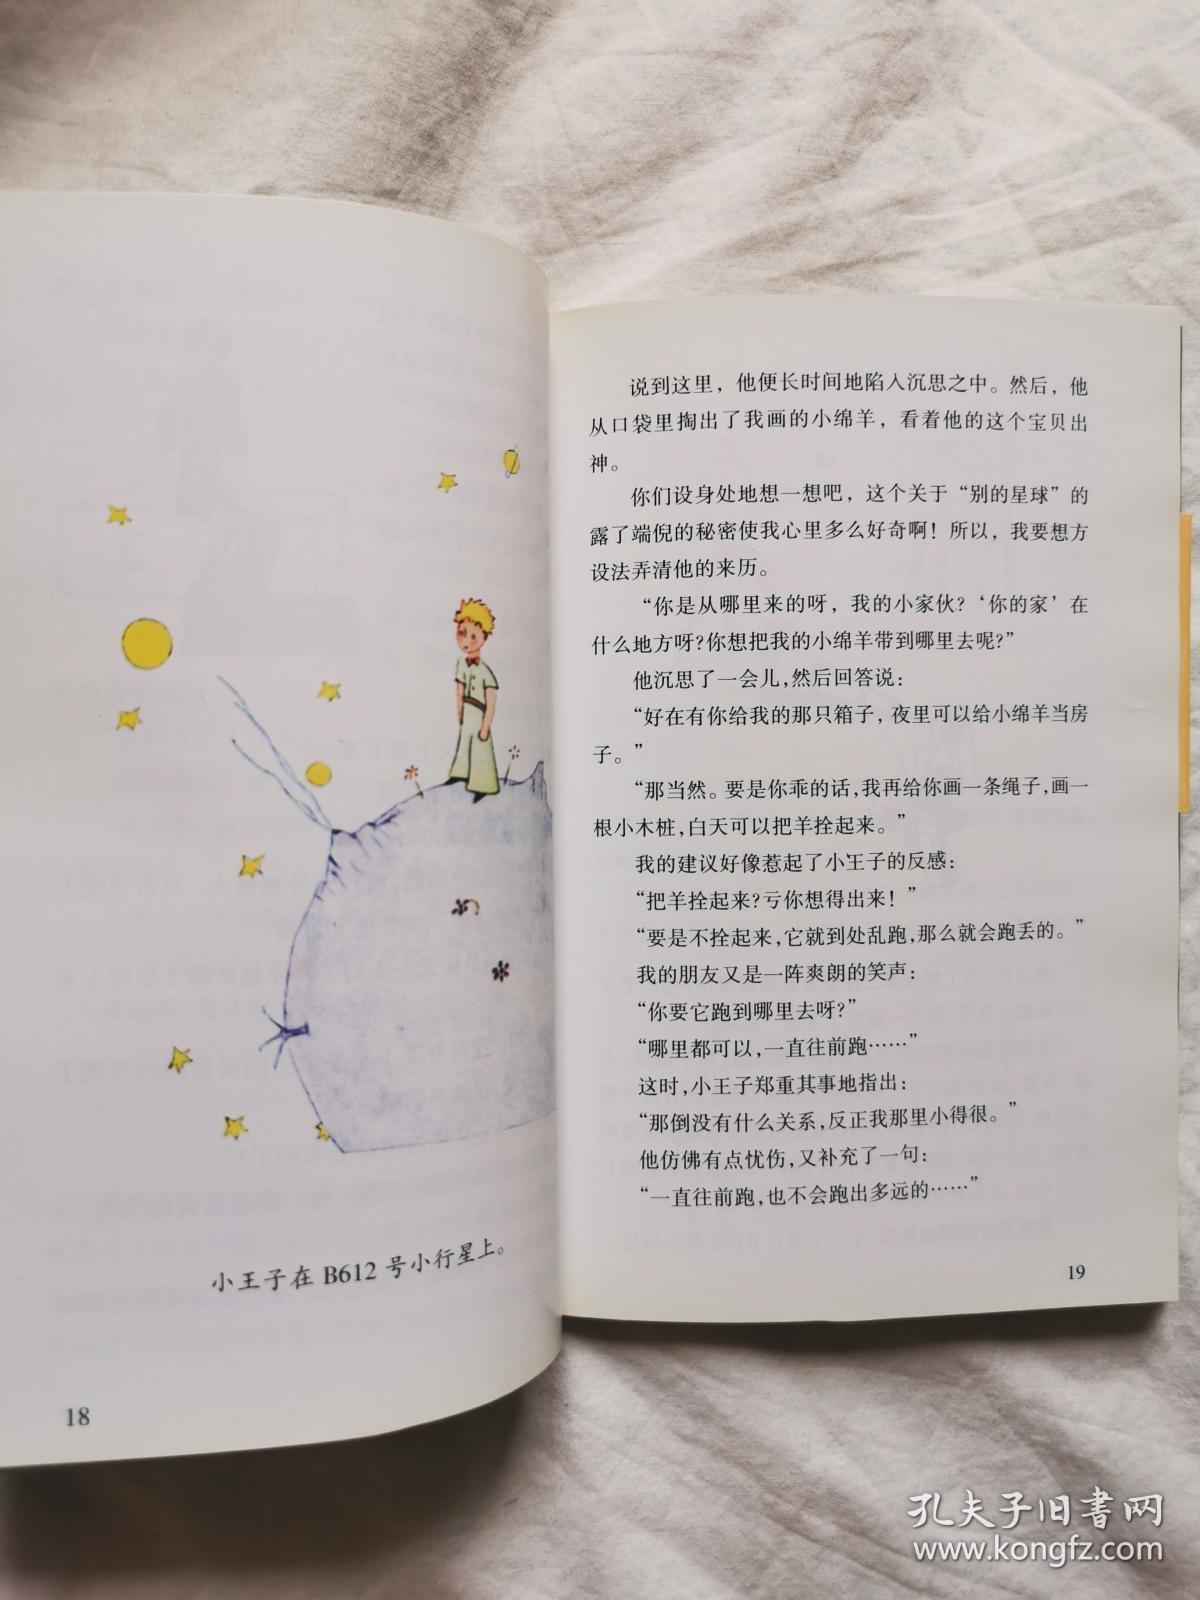 小王子在 B612 号小行星上。
18
说到这里，他便长时间地陷入沉思之中。然后，他
从口袋里掏出了我画的小绵羊，看着他的这个宝贝出
神。
你们设身处地想一想吧，这个关于“别的星球”的
露了端倪的秘密使我心里多么好奇啊！所以，我要想方
设法弄清他的来历。
“你是从哪里来的呀，我的小家伙？‘你的家’在
什么地方呀？你想把我的小绵羊带到哪里去呢？”
他沉思了一会儿，然后回答说：
“好在有你给我的那只箱子，夜里可以给小绵羊当房
子。”
“那当然。要是你乖的话，我再给你画一条绳子，画一
根小木桩，白天可以把羊拴起来。”
我的建议好像惹起了小王子的反感：
“把羊拴起来？亏你想得出来！”
“要是不拴起来，它就到处乱跑，那么就会跑丢的。”
我的朋友又是一阵爽朗的笑声：
“你要它跑到哪里去呀？”
“哪里都可以，一直往前跑……”
这时，小王子郑重其事地指出：
“那倒没有什么关系，反正我那里小得很。”
他仿佛有点忧伤，又补充了一句：
“一直往前跑，也不会跑出多远的……”
19
孔夫子旧书网
www.kongfz.com